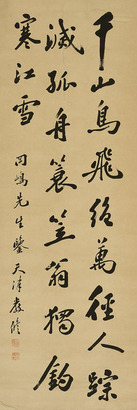 千山鳥飛絕萬徑人踪
滅孤舟簑笠翁獨釣
寒江雪
先生鑒 天津嚴修